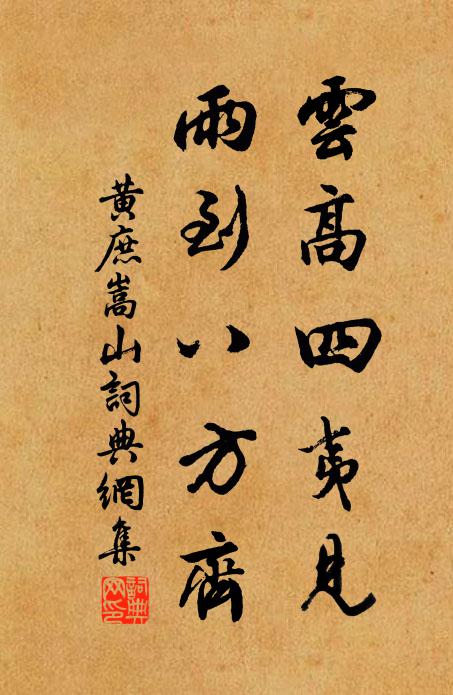 雲高四夷見
雨到八方齊
黃庶嵩山詞典網集
詞典網印